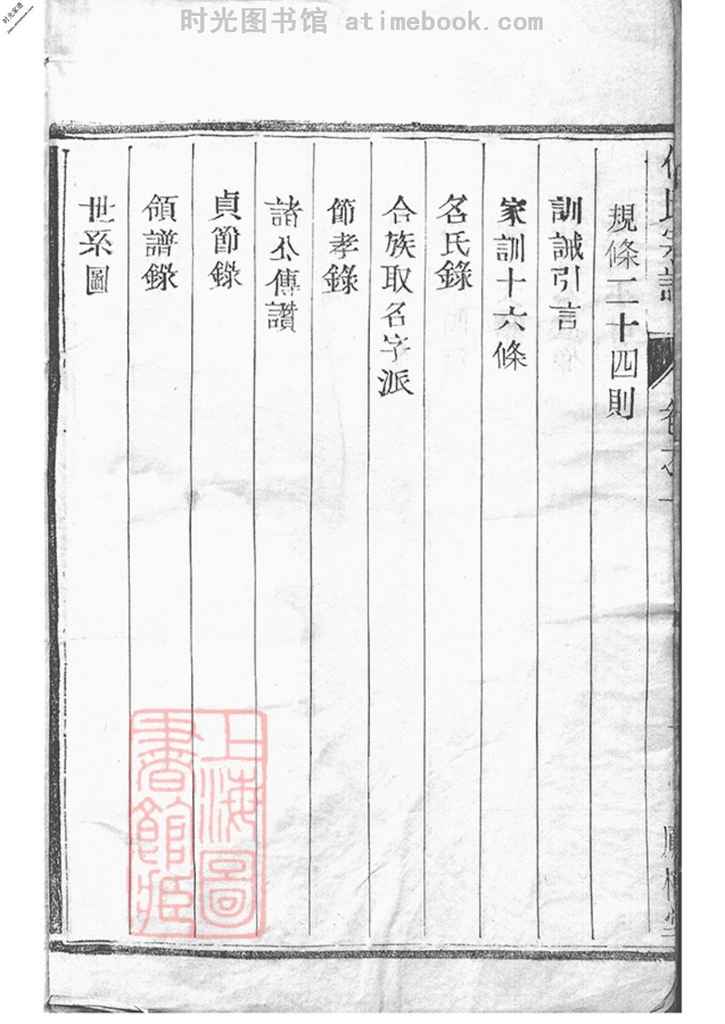 时光图书馆 atimebook.com
時光家譜
氏宗譜
卷之一
規條二十四則
訓誡引言
家訓十六條
名氏錄
合族取名字派
節孝錄
諸公傳讃
貞節錄
領譜錄
世系圖
上海圖
書館藏